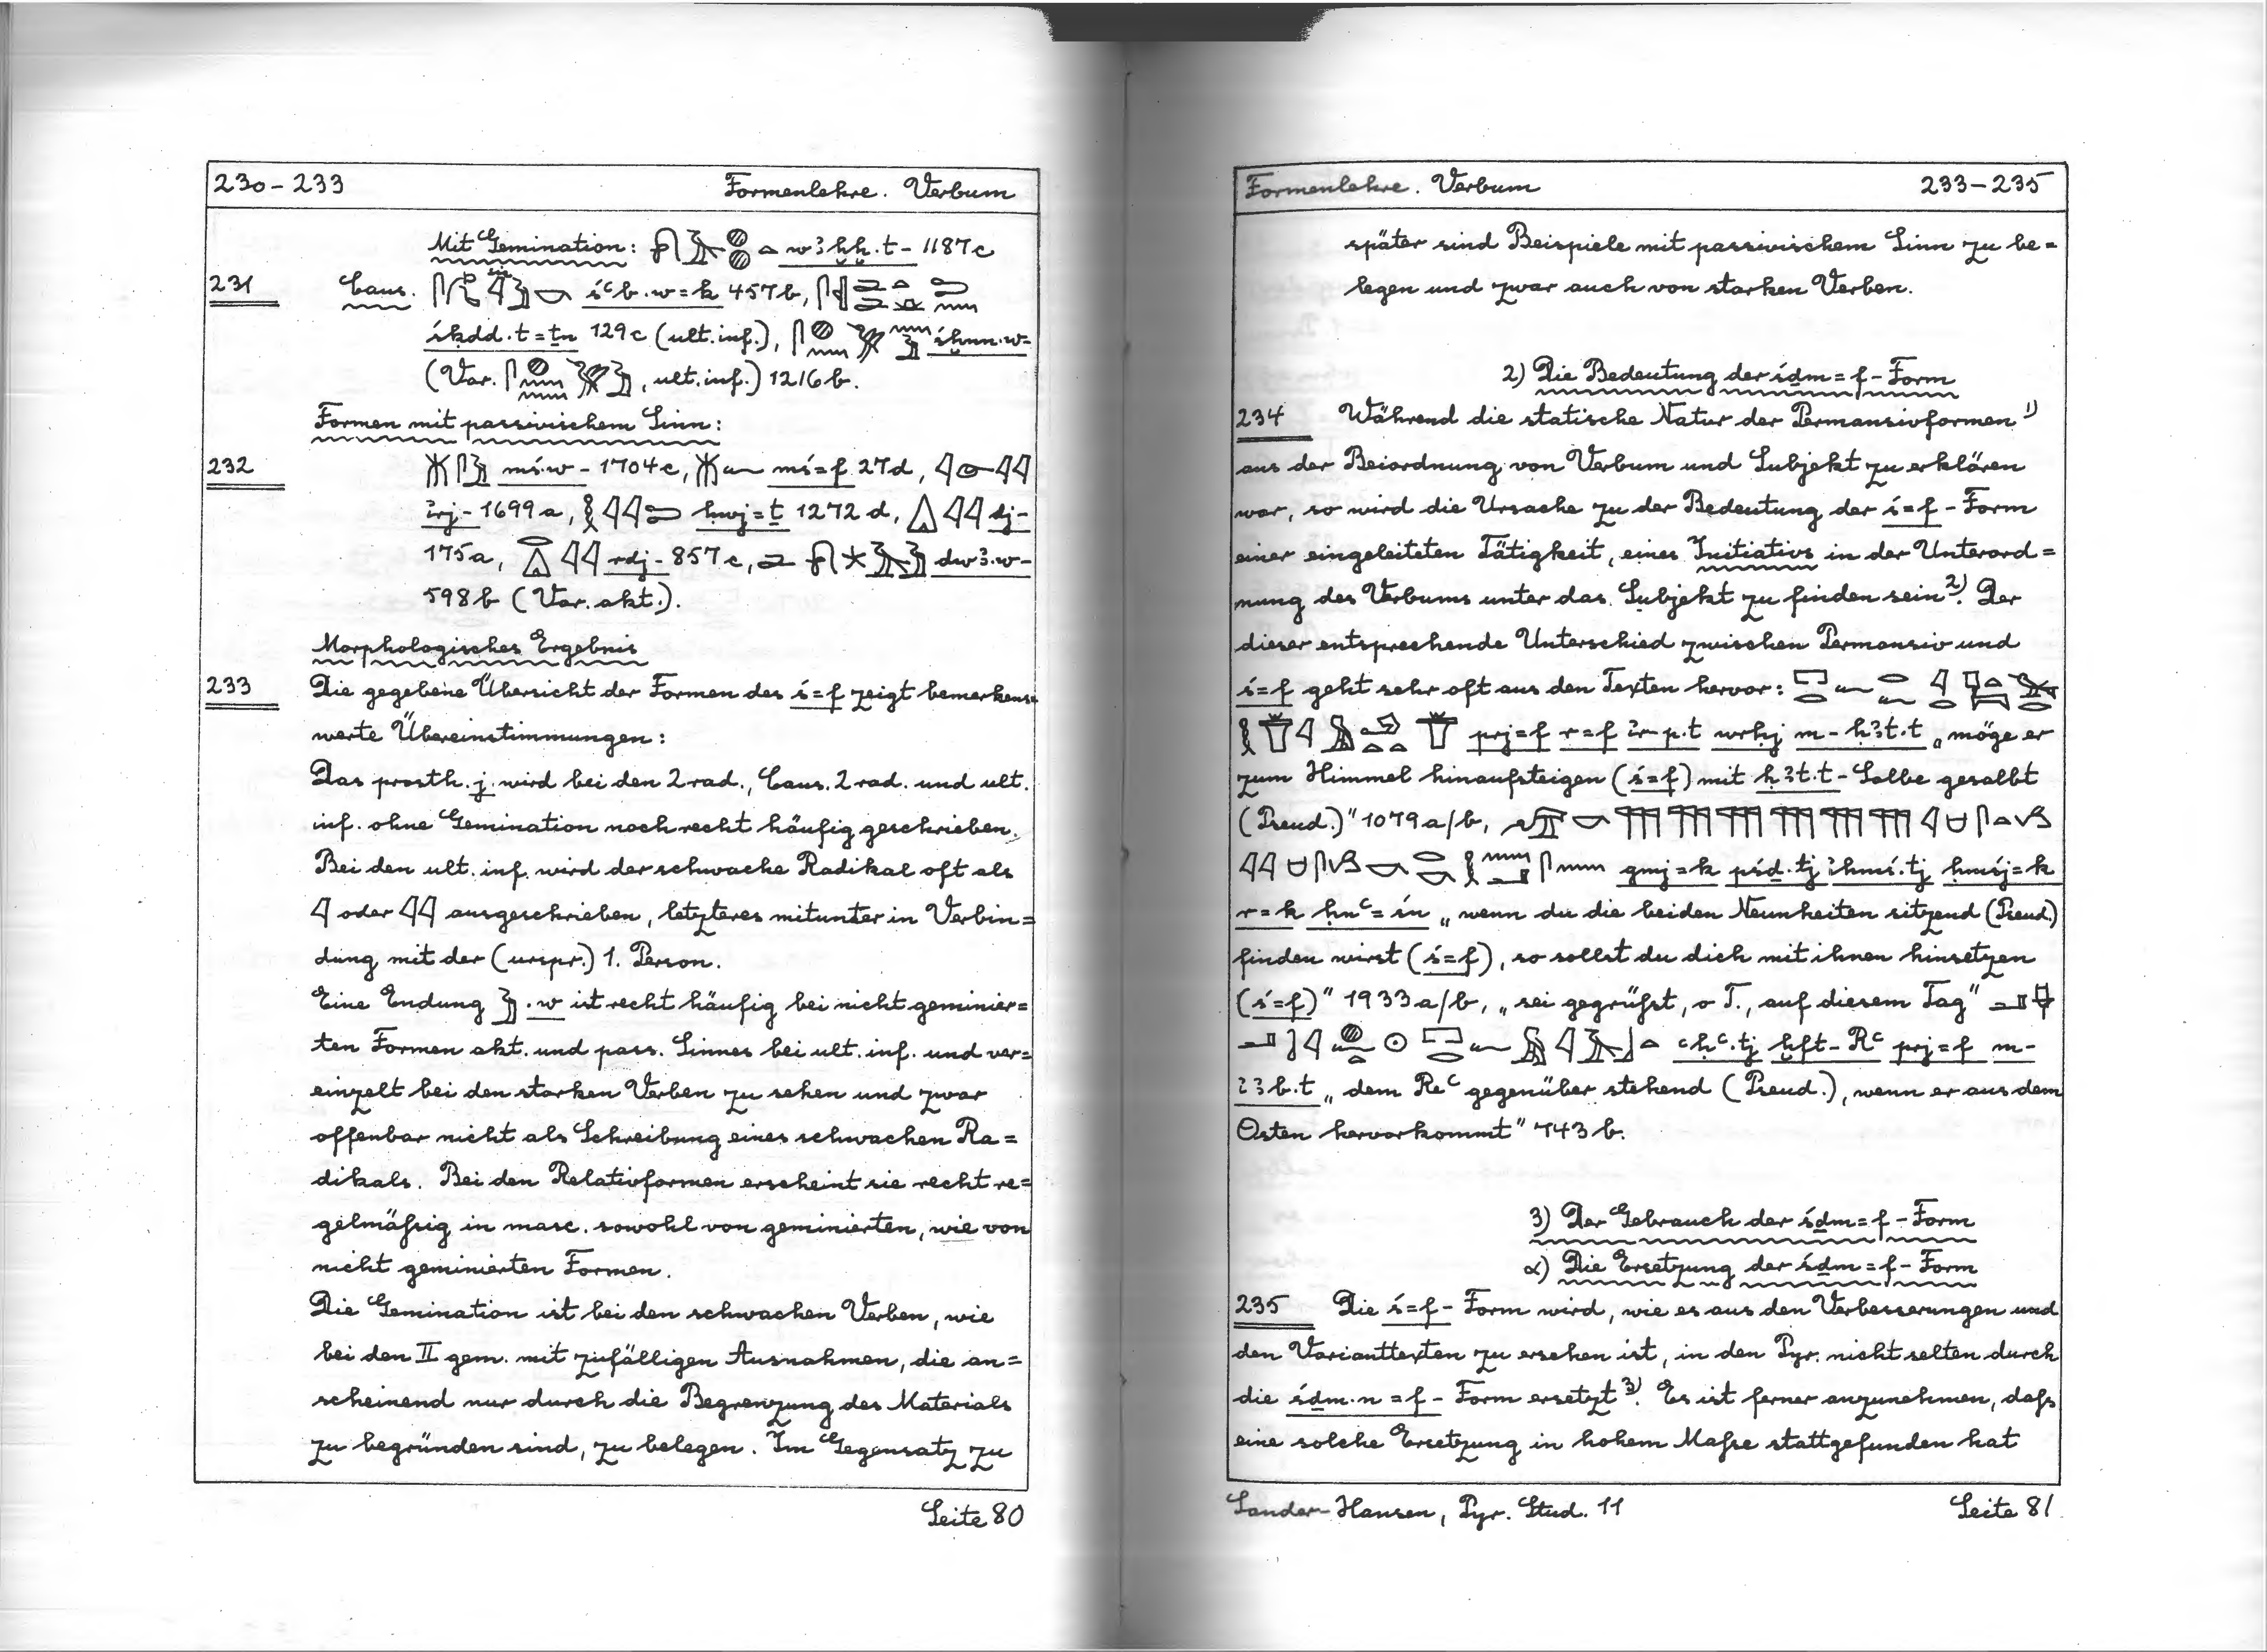 230–233 Formenlehre. Verbum
Mit Gemination: w3ḫḫ.t– 1187c
231 Caus. śꜥb.w=k 457b,
śḳdd.t=ṯn 129c (ult. inf.), śḫnn.w–
(Var. , ult. inf.) 1216b.
Formen mit passivischem Sinn:
232 mś.w– 1704c, mś=f 27d,
ı͗rj– 1699a, ḥwj=ṯ 1272d, dj–
175a, rdj– 857c, dw3.w–
598b (Var. akt.).
Morphologisches Ergebnis
233 Die gegebene Übersicht der Formen des ś=f zeigt bemerkens=
werte Übereinstimmungen:
Das prosth. j wird bei den 2 rad., Caus. 2 rad. und ult.
inf. ohne Gemination noch recht häufig geschrieben.
Bei den ult. inf. wird der schwache Radikal oft als
𓇋 oder 𓇋𓇋 ausgeschrieben, letzteres mitunter in Verbin=
dung mit der (urspr.) 1. Person.
Eine Endung 𓅱 .w ist recht häufig bei nicht geminier=
ten Formen akt. und pass. Sinnes bei ult. inf. und ver=
einzelt bei den starken Verben zu sehen und zwar
offenbar nicht als Schreibung eines schwachen Ra=
dikals. Bei den Relativformen erscheint sie recht re=
gelmäßig in masc. sowohl von geminierten, wie von
nicht geminierten Formen.
Die Gemination ist bei den schwachen Verben, wie
bei den II gem. mit zufälligen Ausnahmen, die an=
scheinend nur durch die Begrenzung des Materials
zu begründen sind, zu belegen. Im Gegensatz zu
Seite 80
Formenlehre. Verbum 233–235
später sind Beispiele mit passivischem Sinn zu be=
legen und zwar auch von starken Verben.
2) Die Bedeutung der śḏm=f–Form
234 Während die statische Natur der Permansivformen 1)
aus der Beiordnung von Verbum und Subjekt zu erklären
war, so wird die Ursache zu der Bedeutung der ś=f–Form
einer eingeleiteten Tätigkeit, eines Initiativs in der Unterord=
nung des Verbums unter das Subjekt zu finden sein 2). Der
dieser entsprechende Unterschied zwischen Permansiv und
ś=f geht sehr oft aus den Texten hervor:
prj=f r=f ı͗r–p.t wrḥj m–ḥ3t.t „möge er
zum Himmel hinaufsteigen (ś=f) mit ḥ3t.t–Salbe gesalbt
(Pseud.)" 1079a/b,
gmj=k pśḏ.tj ı͗ḥmś.tj ḥmśj=k
r=k ḥnꜥ=śn „wenn du die beiden Neunheiten sitzend (Pseud.)
finden wirst (ś=f), so sollst du dich mit ihnen hinsetzen
(ś=f)" 1933a/b, „sei gegrüßt, o T., auf diesem Tag"
ꜥḥꜥ.tj ḫft–Rꜥ prj=f m–
ı͗3b.t „dem Reꜥ gegenüber stehend (Pseud.), wenn er aus dem
Osten hervorkommt" 743b.
3) Der Gebrauch der śḏm=f–Form
α) Die Ersetzung der śḏm=f–Form
235 Die ś=f–Form wird, wie es aus den Verbesserungen und
den Varianttexten zu ersehen ist, in den Pyr. nicht selten durch
die śḏm.n=f–Form ersetzt 3). Es ist ferner anzunehmen, daß
eine solche Ersetzung in hohem Maße stattgefunden hat
Sander-Hansen, Pyr. Stud. 11 Seite 81